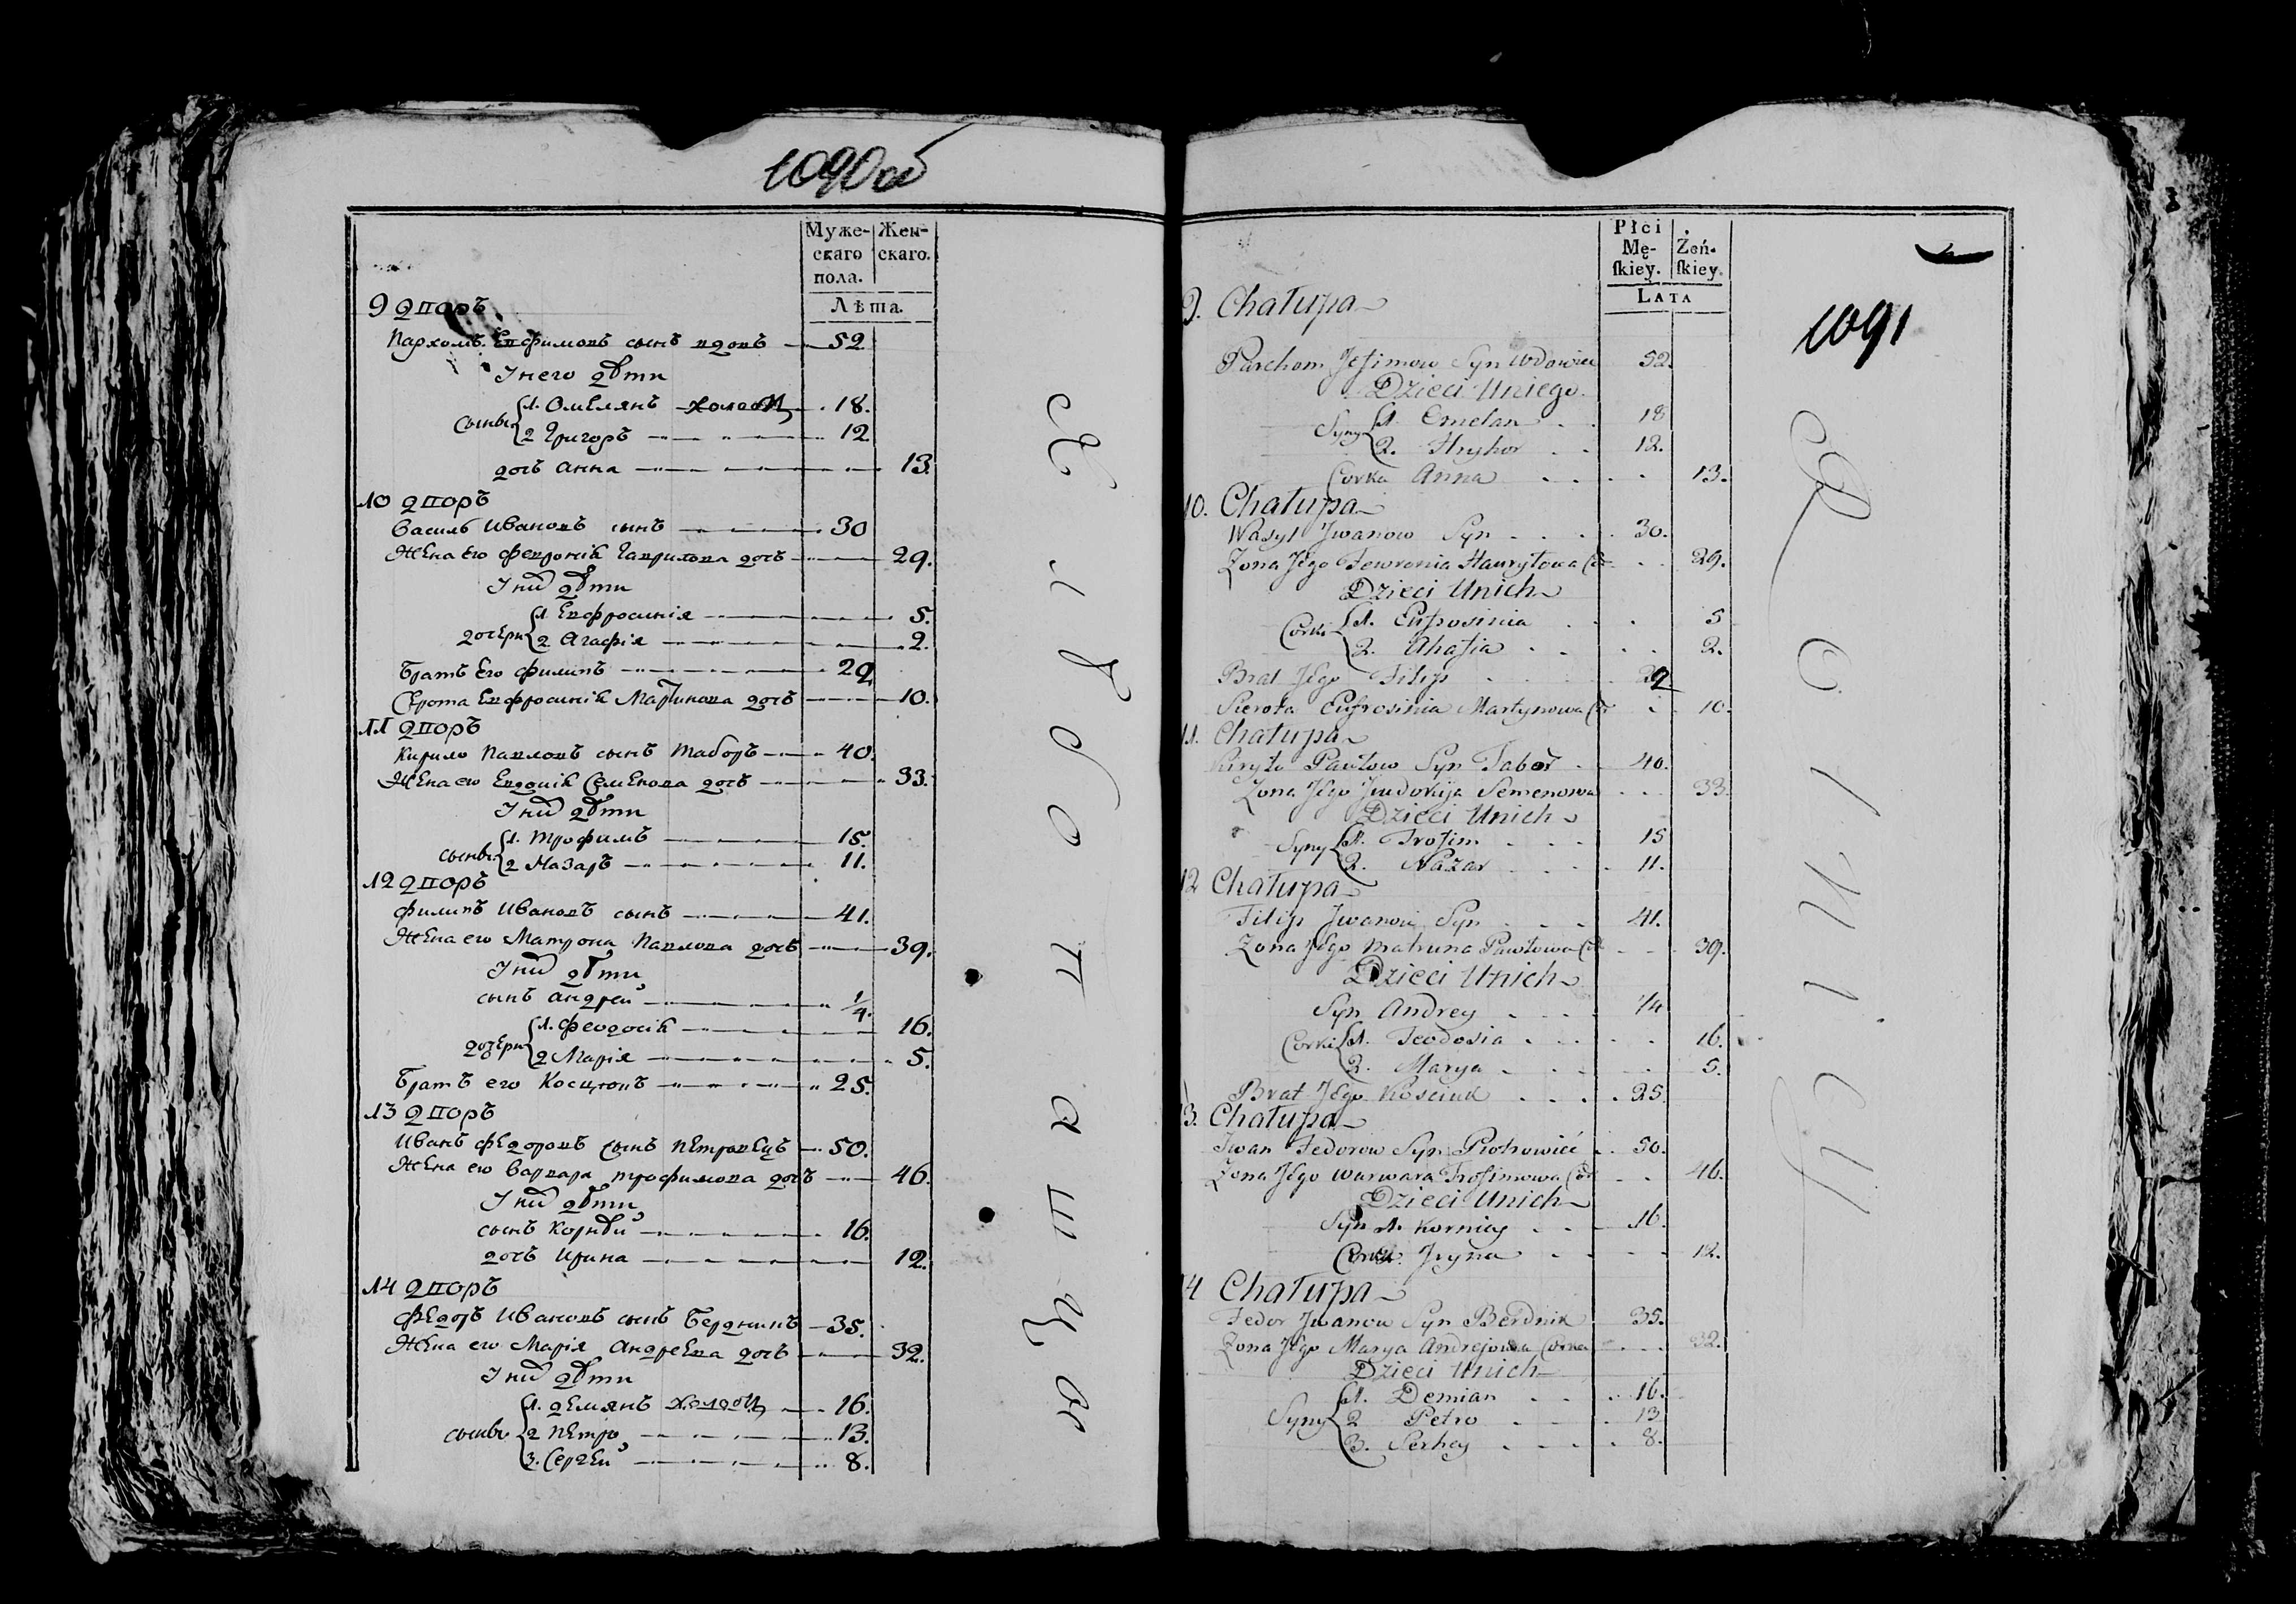 1090 об
Муже-
скаго
пола.
Жен-
скаго.
Лѣта.
9 дворъ
Пархомъ Евфимовъ сынъ вдовъ 52
У него дѣти
сыны 1. Омелянъ холост 18.
2 Григоръ 12
дочь Анна 13.
10 дворъ
Василь Ивановъ сынъ 30
Жена его Феврониѣ Гаврилова дочь 29.
У них дѣти
дочери 1. Евфросиния 5.
2 Агафія 2.
Братъ его Филипъ 29
Сирота Евфросиниѣ Мартинова дочь 10.
11 дворъ
Кирило Павловъ сынъ Таборъ 40.
Жена его Евдониѣ Семенова дочь 33.
У них дѣти
сыны 1. Трофимъ 15.
2 Назаръ 11.
12 дворъ
Филипъ Ивановъ сынъ 41.
Жена его Матрона Павлова дочь 39.
У них дѣти
сынъ Андрей 1/4.
дочери 1. Феодосиѣ 16.
2 Марія 5.
Братъ его Косцюпъ 25.
13 дворъ
Иванъ Федоровъ сынъ Петровецъ 50.
Жена его Варвара Трофимова дочь 46.
У них дѣти
сынъ Корнѣй 16.
дочь Ирина 12.
14 дворъ
Федоръ Ивановъ сынъ Берднипъ 35.
Жена его Марія Андреева дочь 32.
У них дѣти
сыны 1. Демянъ холост 16.
2 Петро 13.
3. Сергей 8.
1091
Płci
Mę-
ſkiey.
Żeń-
ſkiey.
LATA
9. Chałupa
Parchom Jefimow Syn Wdowiec 52.
Dzieci Uniego.
Syny 1. Emelan 18
2. Hryhor 12.
Corka Anna 13.
10. Chałupa
Wasyl Jwanow Syn 30.
Zona Jego Fewronia Hawryłowa Cór 29.
Dzieci Unich
Corki 1. Eufrosinia 5
2. Ahafia 2.
Brat Jego Filip 29
Sierota Eufrosinia Martynowa Cór 10.
11. Chałupa
Kiryło Pawłow Syn Tabor 40.
Zona Jego Jewdokija Semenowa 33.
Dzieci Unich
Syny 1. Trofim 15
2. Nazar 11.
12 Chałupa
Filip Jwanow Syn 41.
Zona Jego Matruna Pawłowa Cór 39.
Dzieci Unich
Syn Andrey 1/4
Corki 1. Teodosia 16.
2. Marya 5.
Brat Jego Kosciuk 25.
13. Chałupa
Jwan Fedorow Syn Piotrowicć 50.
Zona Jego Warwara Trofimowa Cór 46.
Dzieci Unich
Syn 1. Korniey 16.
Corka Jryna 12.
14 Chałupa
Fedor Jwanow Syn Berdnik 35.
Zona Jego Marya Andrejowa Corka 32.
Dzieci Unich
Syny 1. Demian 16.
2 Petro 13
3. Serhey 8.